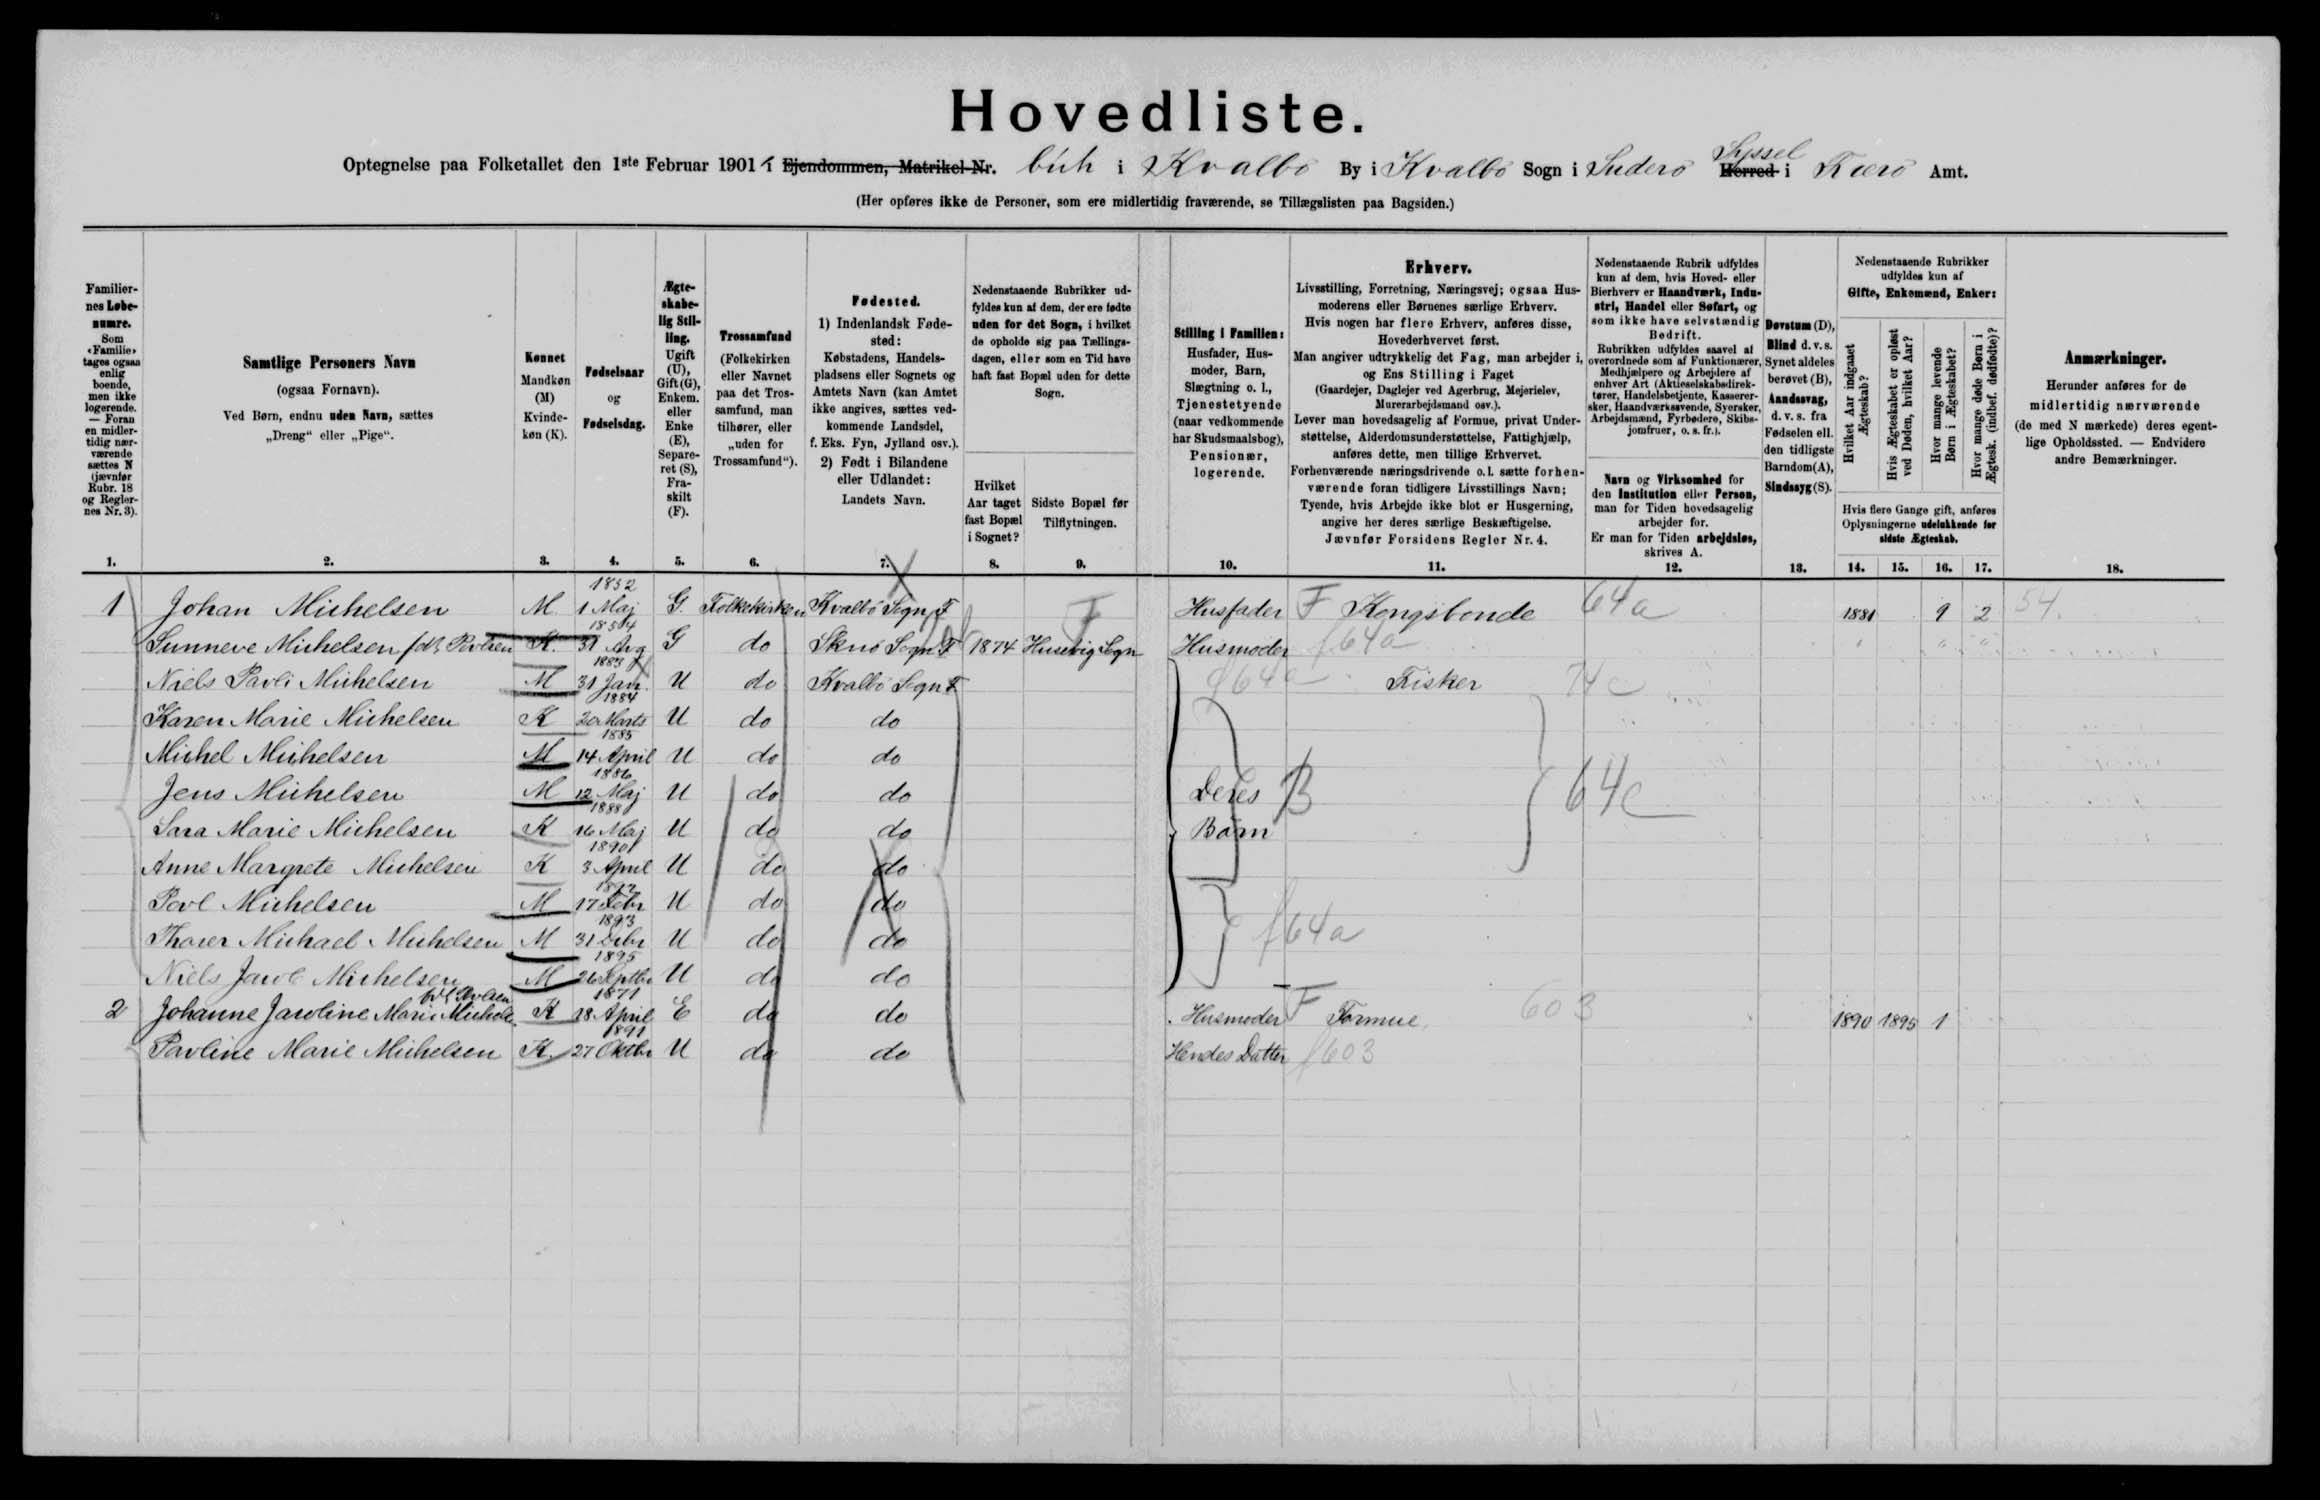 Hovedliste.
Optegnelse paa Folketallet den 1ste Februar 1901 i Ejendommen, Matrikel-Nr. búh i Kvalbø By i Kvalbø Sogn i Suderø Syssel Herred i Færø Amt.
(Her opføres ikke de Personer, som ere midlertidig fraværende, se Tillægslisten paa Bagsiden.)
Familiernes Løbenumre. Som «Familie» tages ogsaa enlig boende, men ikke logerende. — Foran en midlertidig nærværende sættes N (jævnfør Rubr. 18 og Reglernes Nr. 3).
Samtlige Personers Navn (ogsaa Fornavn). Ved Børn, endnu uden Navn, sættes „Dreng“ eller „Pige“.
Kønnet Mandkøn (M) Kvindekøn (K).
Fødselsaar og Fødselsdag.
Ægteskabelig Stilling. Ugift (U), Gift (G), Enkem. eller Enke (E), Separeret (S), Fraskilt (F).
Trossamfund (Folkekirken eller Navnet paa det Trossamfund, man tilhører, eller „uden for Trossamfund“).
Fødested. 1) Indenlandsk Fødested: Købstadens, Handelspladsens eller Sognets og Amtets Navn (kan Amtet ikke angives, sættes vedkommende Landsdel, f. Eks. Fyn, Jylland osv.). 2) Født i Bilandene eller Udlandet: Landets Navn.
Nedenstaaende Rubrikker udfyldes kun af dem, der ere fødte uden for det Sogn, i hvilket de opholde sig paa Tællingsdagen, eller som en Tid have haft fast Bopæl uden for dette Sogn.
Hvilket Aar taget fast Bopæl i Sognet?
Sidste Bopæl før Tilflytningen.
Stilling i Familien: Husfader, Husmoder, Barn, Slægtning o. l., Tjenestetyende (naar vedkommende har Skudsmaalsbog), Pensionær, logerende.
Erhverv. Livsstilling, Forretning, Næringsvej; ogsaa Husmoderens eller Børnenes særlige Erhverv. Hvis nogen har flere Erhverv, anføres disse, Hovederhvervet først. Man angiver udtrykkelig det Fag, man arbejder i, og Ens Stilling i Faget (Gaardejer, Daglejer ved Agerbrug, Mejerielev, Murerarbejdsmand osv.). Lever man hovedsagelig af Formue, privat Understøttelse, Alderdomsunderstøttelse, Fattighjælp, anføres dette, men tillige Erhvervet. Forhenværende næringsdrivende o. l. sætte forhenværende foran tidligere Livsstillings Navn; Tyende, hvis Arbejde ikke blot er Husgerning, angive her deres særlige Beskæftigelse. Jævnfør Forsidens Regler Nr. 4.
Nedenstaaende Rubrik udfyldes kun af dem, hvis Hoved- eller Bierhverv er Haandværk, Industri, Handel eller Søfart, og som ikke have selvstændig Bedrift. Rubrikken udfyldes saavel af overordnede som af Funktionærer, Medhjælpere og Arbejdere af enhver Art (Aktieselskabsdirektører, Handelsbetjente, Kasserersker, Haandværkssvende, Syersker, Arbejdsmænd, Fyrbødere, Skibsjomfruer, o. s. fr.).
Navn og Virksomhed for den Institution eller Person, man for Tiden hovedsagelig arbejder for. Er man for Tiden arbejdsløs, skrives A.
Døvstum (D), Blind d. v. s. Synet aldeles berøvet (B), Aandssvag, d. v. s. fra Fødselen ell. den tidligste Barndom (A), Sindssyg (S).
Nedenstaaende Rubrikker udfyldes kun af Gifte, Enkemænd, Enker:
Hvilket Aar indgaaet Ægteskab?
Hvis Ægteskabet er opløst ved Døden, hvilket Aar?
Hvor mange levende Børn i Ægteskabet?
Hvor mange døde Børn i Ægtesk. (indbef. dødfødte)?
Hvis flere Gange gift, anføres Oplysningerne udelukkende for sidste Ægteskab.
Anmærkninger. Herunder anføres for de midlertidig nærværende (de med N mærkede) deres egentlige Opholdssted. — Endvidere andre Bemærkninger.
1. 2. 3. 4. 5. 6. 7. 8. 9. 10. 11. 12. 13. 14. 15. 16. 17. 18.
1 Johan Michelsen M 1852 1 Maj G Folkekirken Kvalbø Sogn F F Husfader F Kongsbonde 64a 1881 9 2 54.
Sunneve Michelsen fdt Povlsen K. 1854 31 Avg G do Sknø Sogn F 1874 Husevig Sogn Husmoder f64a " " "
Niels Pavli Michelsen M 1883 31 Jan. U do Kvalbø Sogn F Fisker 74c
Karen Marie Michelsen K 1884 20 Marts U do do
Michel Michelsen M 1885 14 April U do do
Jens Michelsen M 1886 12 Maj U do do Deres B 64c
Sara Marie Michelsen K 1888 16 Maj U do do Børn
Anne Margrete Michelsen K 1890 3 April U do do
Povl Michelsen M 1892 17 Febr U do do
Thorer Michael Michelsen M 1893 31 Debr U do do f64a
Niels Jacob Michelsen M 1895 26 Septbr U do do
2 Johanne Jacoline Marie Michels. fdt Povlsen K 1871 18 April E do do Husmoder F Formue 603 1890 1895 1
Pavline Marie Michelsen K. 1891 27 Oktbr U do do Hendes Datter f603